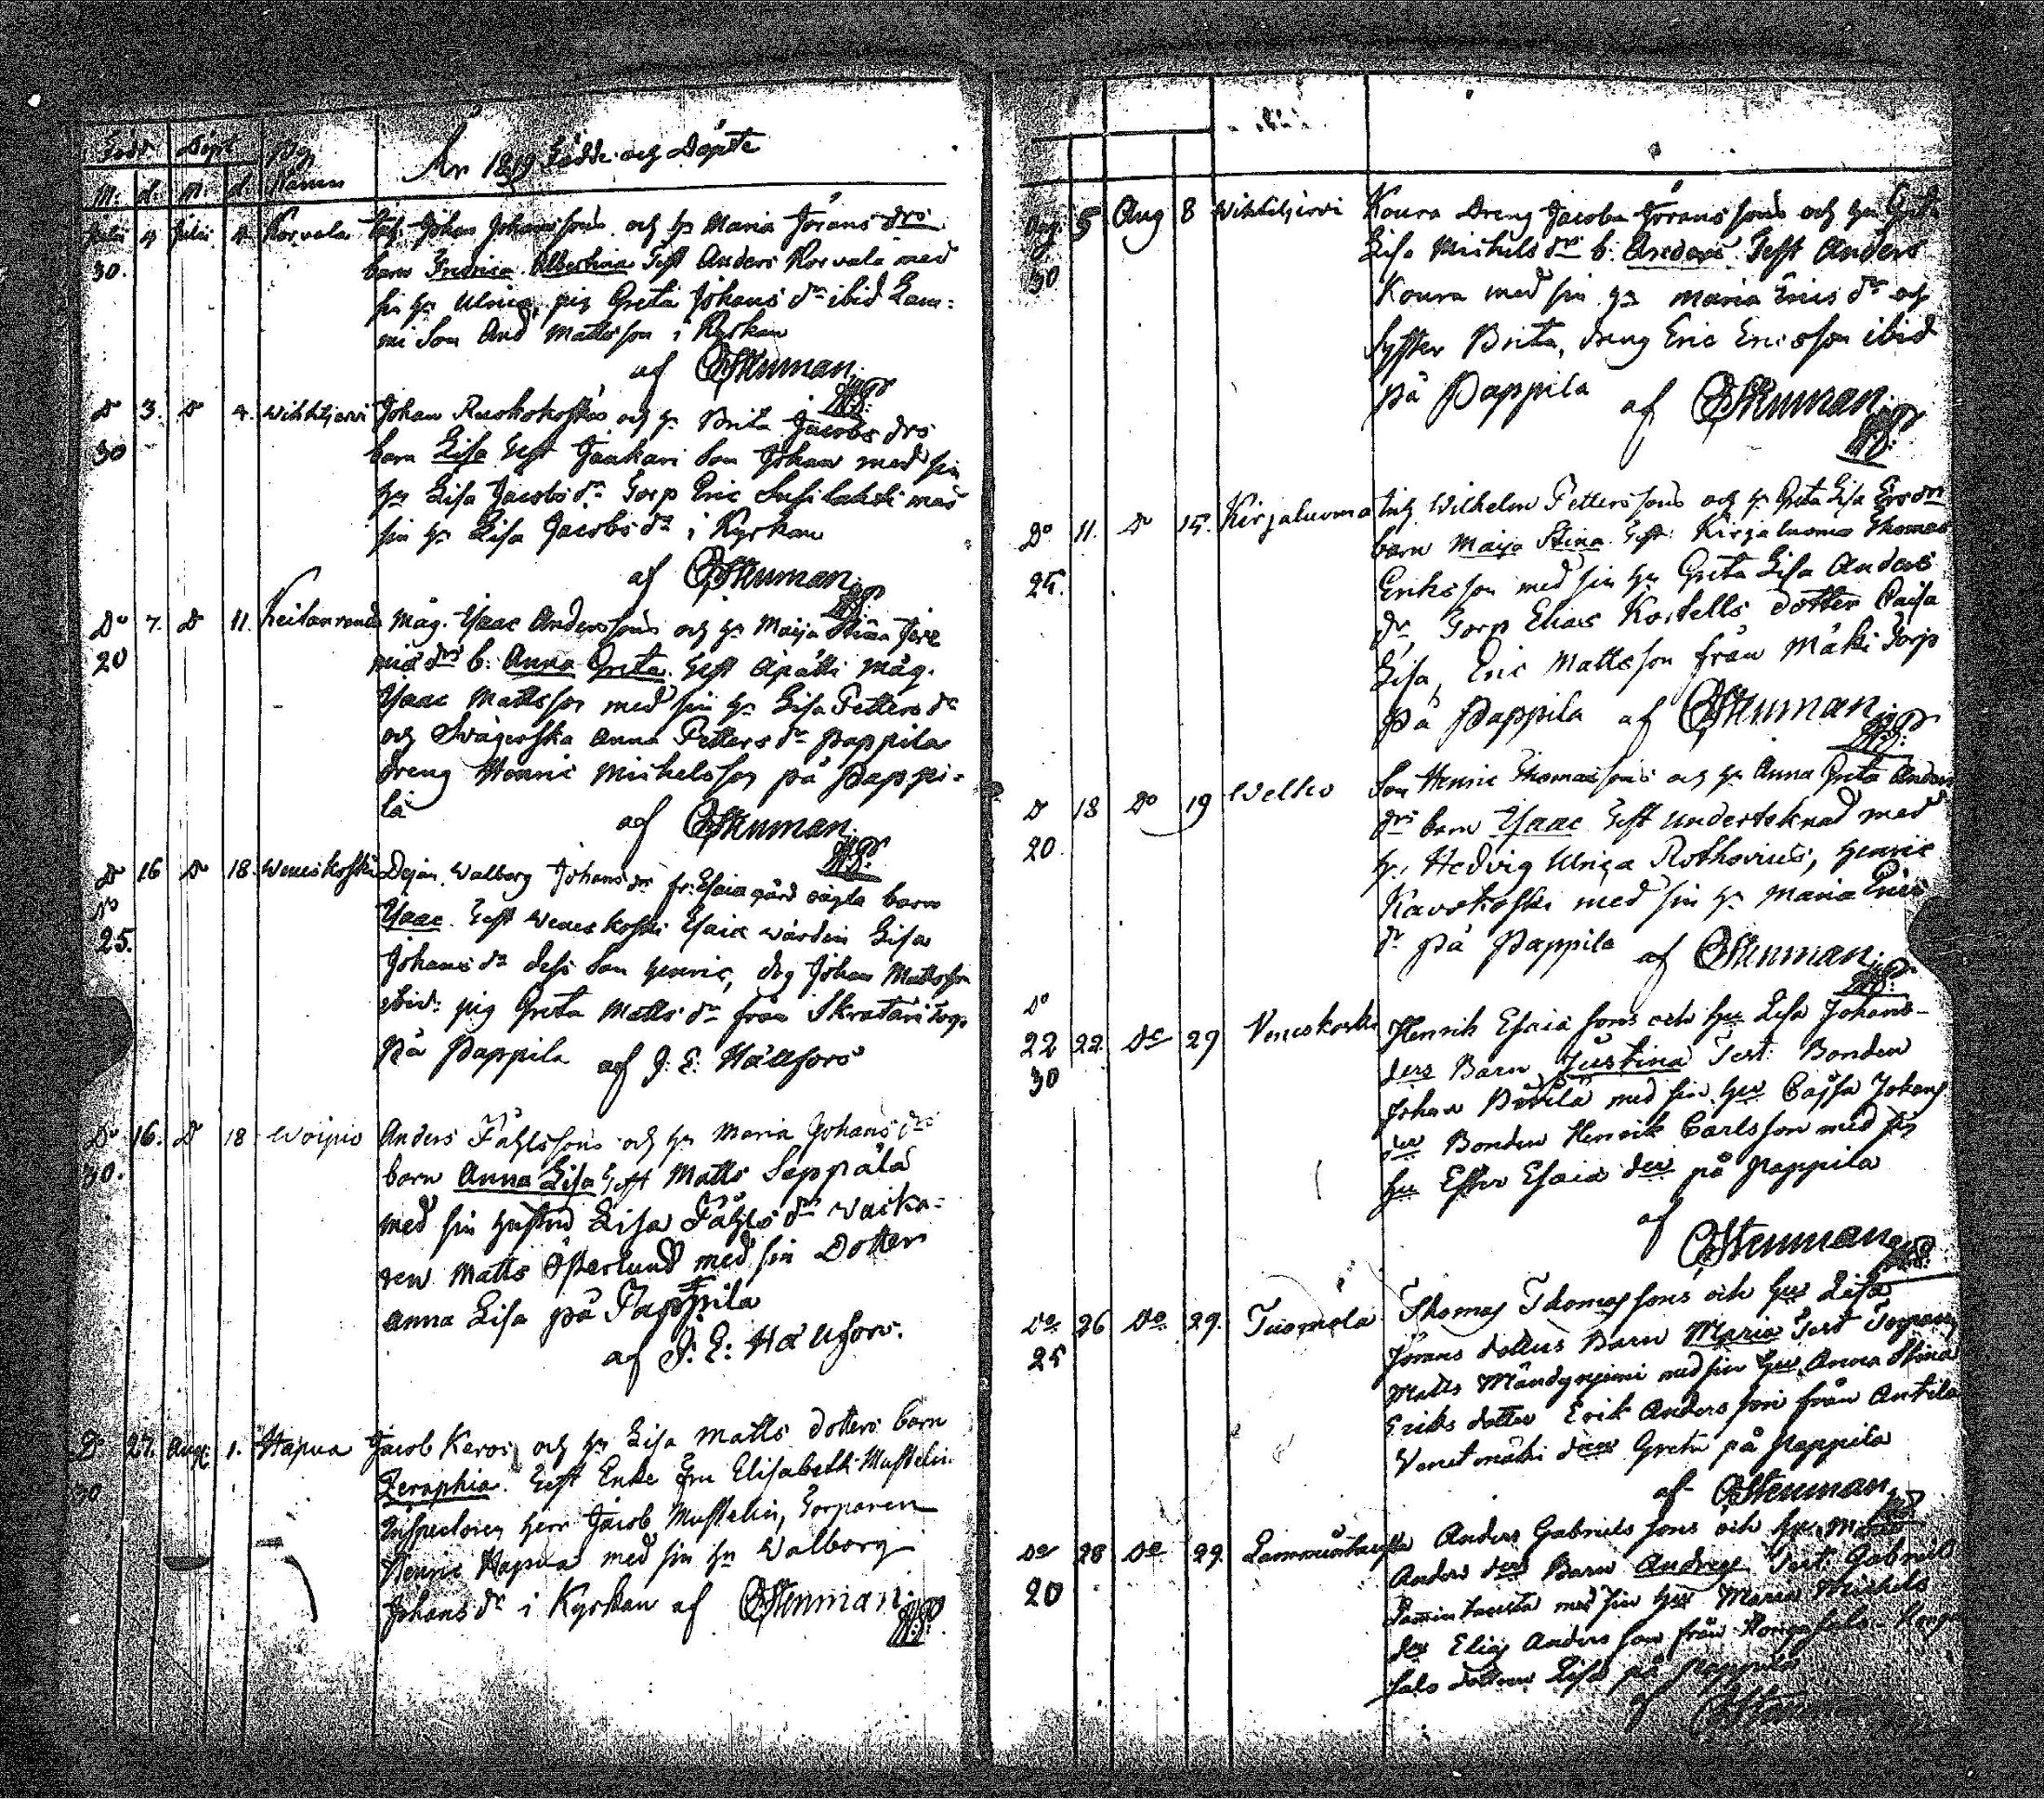 Född. Döpt. Byg
M. d. M. d. Namn
År 1819 Födde och Döpte
Julii 9 Julii Korvala Johan Johanssons och H: Maria Jörans drs
30. barn Fredrica Albertina Test Anders Korvala med
sin H: Ulrica, pig Greta Johans dr ibid Lam=
mi Son And Mattsson i Kyrkan
af Stenman
Do 3. Do 4. Wihktjervi Johan Ruokokoskis och H: Brita Jacobs drs
30 barn Lisa Test Jaakari Son Johan med sin
H: Lisa Jacobs dr Torp Eric Susilahti med
sin H: Lisa Jacobs dr i Kyrkan
af Stenman
Do 7. Do 11. Keitanranda Måg. Isaac Anderssons och H: Maija Stina Jere
20 mia drs b: Anna Greta. Test Apatti Måg.
Isaac Mattsson med sin H: Lisa Petters dr
och Svägerska Anna Petters dr Pappila
dreng Henric Michelsson på Pappi=
la
af Stenman
Do 16 Do 18. Weneskoski Walborg Johans dr fr: Esaia gård oägta barn
25. Isaac. Test Weneskoski Esaia wärdin Lisa
Johans dr dess Son Henric, drg Johan Mattsson
ibid: pig Greta Matts dr från Skratari torp.
På Pappila af J. E. Hällfors
Do 16. Do 18 Woipio Anders Påhlssons och H: Maria Johans drs
30. barn Anna Lisa Test Matts Seppälä
med sin hustru Lisa Påhls dr Waska=
ren Matts Österlund med sin Dotter
Anna Lisa på Pappila
af J. E. Hällfors.
Do 27. Aug. 1. Hapua Jacob Keros och H: Lisa Matts dotters barn
30 Zeraphia. Test Enke Fru Elisabeth Mustelin
Inspectoren Herr Jacob Mustelin, Torparen
Henric Hapua med sin H: Walborg
Johans dr i Kyrkan af Stenman
Aug. 5 Aug 8 Wihktjervi Koura Dreng Jacobs Jöranssons och H: Greta
30 Lisa Michels drs b: Anders. Test Anders
Koura med sin H: Maria Erics dr och
Syster Brita, dreng Eric Ericsson ibid
på Pappila af Stenman
Do 11. Do 15. Kirjaluoma Inh Wilhelm Petterssons och H: Greta Lisa Ers drs
25. barn Maija Stina. Test: Kirjaluoma Thomas
Eriksson med sin H: Greta Lisa Anders
dr, Torp Elias Kortells dotter Caisa
Lisa, Eric Mattsson från Mäki torp
På Pappila af Stenman
Do 18 Do 19 Welko Son Henric Thomassons och H: Anna Greta Anders
20. drs barn Isaac Test Underteknad med
H: Hedvig Ulrica Rothovius, Henric
Kavokoski med sin H: Maria Erics
dr På Pappila af Stenman
Do
22 22. Do 29 Veneskoski Henrik Esaia sons och Hu Lisa Johans-
30 ders Barn Justina Test: Bonden
Johan med sin Hu Cajsa Johans
der Bonden Henrik Carlsson med sin
Hu Ester Esaia der på Pappila
af
Stenman
Do 26 Do 29. Tuomela Thomas Thomas sons och Hus Lisa
25 Jörans dotters Barn Maria Test Torparen
Matts Mändyniemi med sin Hu Anna Stina
Eriks dotter Erik Anders son från Antila
Venetmäki Greta på Pappila
af Stenman
Do 28 Do 29. Anders Gabriels sons och Hu
20 Anders ders Barn Andreas Test. Gabriel
med sin Hu Maria Michels
der Elias Anders son från
dottren Lisa på Pappila
af Stenman